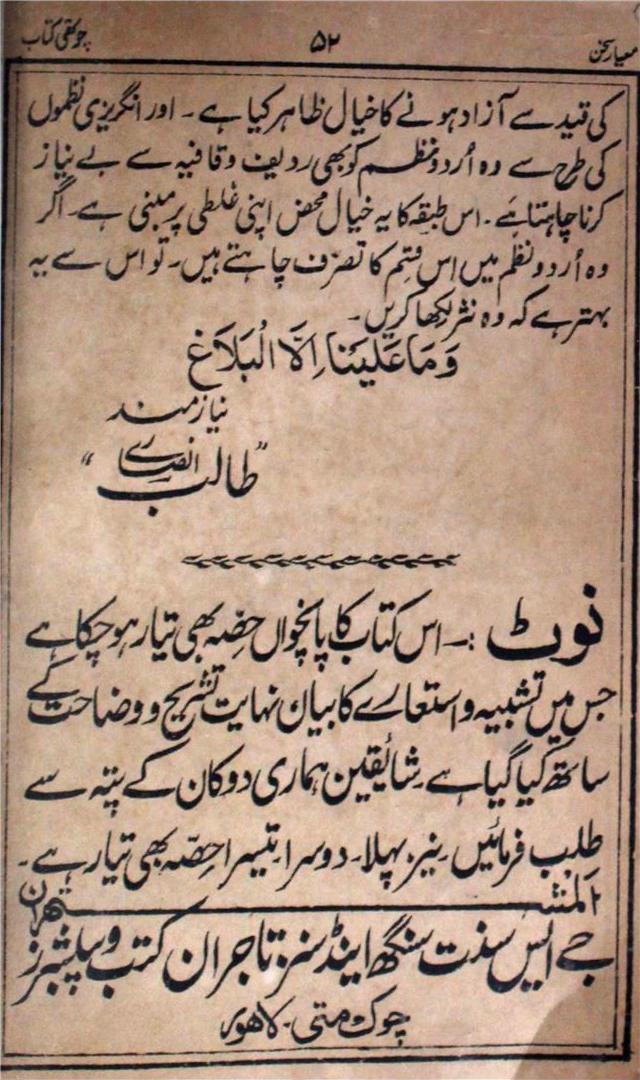 معیار سخن ۵۲ چوتھی کتاب
کی قید سے آزاد ہونے کا خیال ظاہر کیا ہے۔ اور انگریزی نظموں
کی طرح سے وہ اُردو نظم کو بھی ردیف و قافیہ سے بے نیاز
کرنا چاہتا ہے۔ اس طبقہ کا یہ خیال محض اپنی غلطی پر مبنی ہے۔ اگر
وہ اُردو نظم میں اس قسم کا تصرّف چاہتے ہیں۔ تو اس سے یہ
بہتر ہے کہ وہ نثر لکھا کریں۔
وَمَا عَلَیْنَا اِلَّا الْبَلَاغ
نیاز مند
”طالب انصاری“
نوٹ :۔ اس کتاب کا پانچواں حصّہ بھی تیار ہو چکا ہے
جس میں تشبیہ و استعارے کا بیان نہایت تشریح و وضاحت کے
ساتھ کیا گیا ہے۔ شائقین ہماری دوکان کے پتہ سے
طلب فرمائیں۔ نیز پہلا۔ دوسرا۔ تیسرا حصّہ بھی تیار ہے۔
المشتہران
جے ایس سنت سنگھ اینڈ سنز تاجران کتب و پبلشرز
چوک متی۔ لاہور